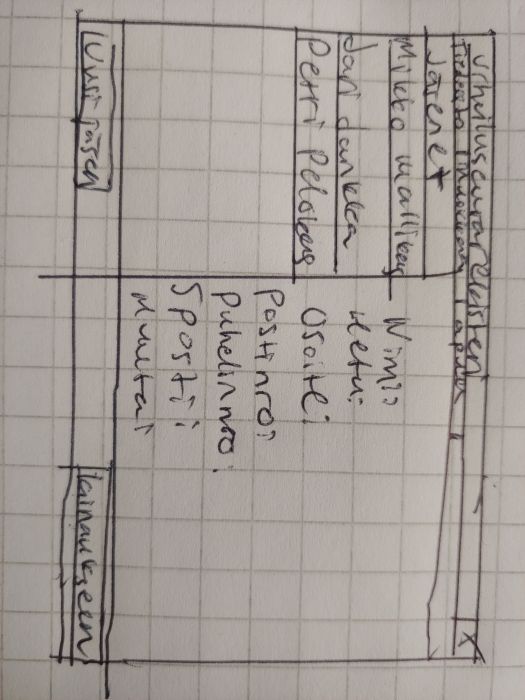 Urheiluseurarekisteri X
Tiedosto Muokkaus Apua
Jäsenet
Mikko Mallikas
Jari Jankka
Petri Pelokas
Nimi:
Hetu:
Osoite:
Postinro:
Puhelinnro:
Sposti:
Muuta:
Uusi jäsen
lainaukseen